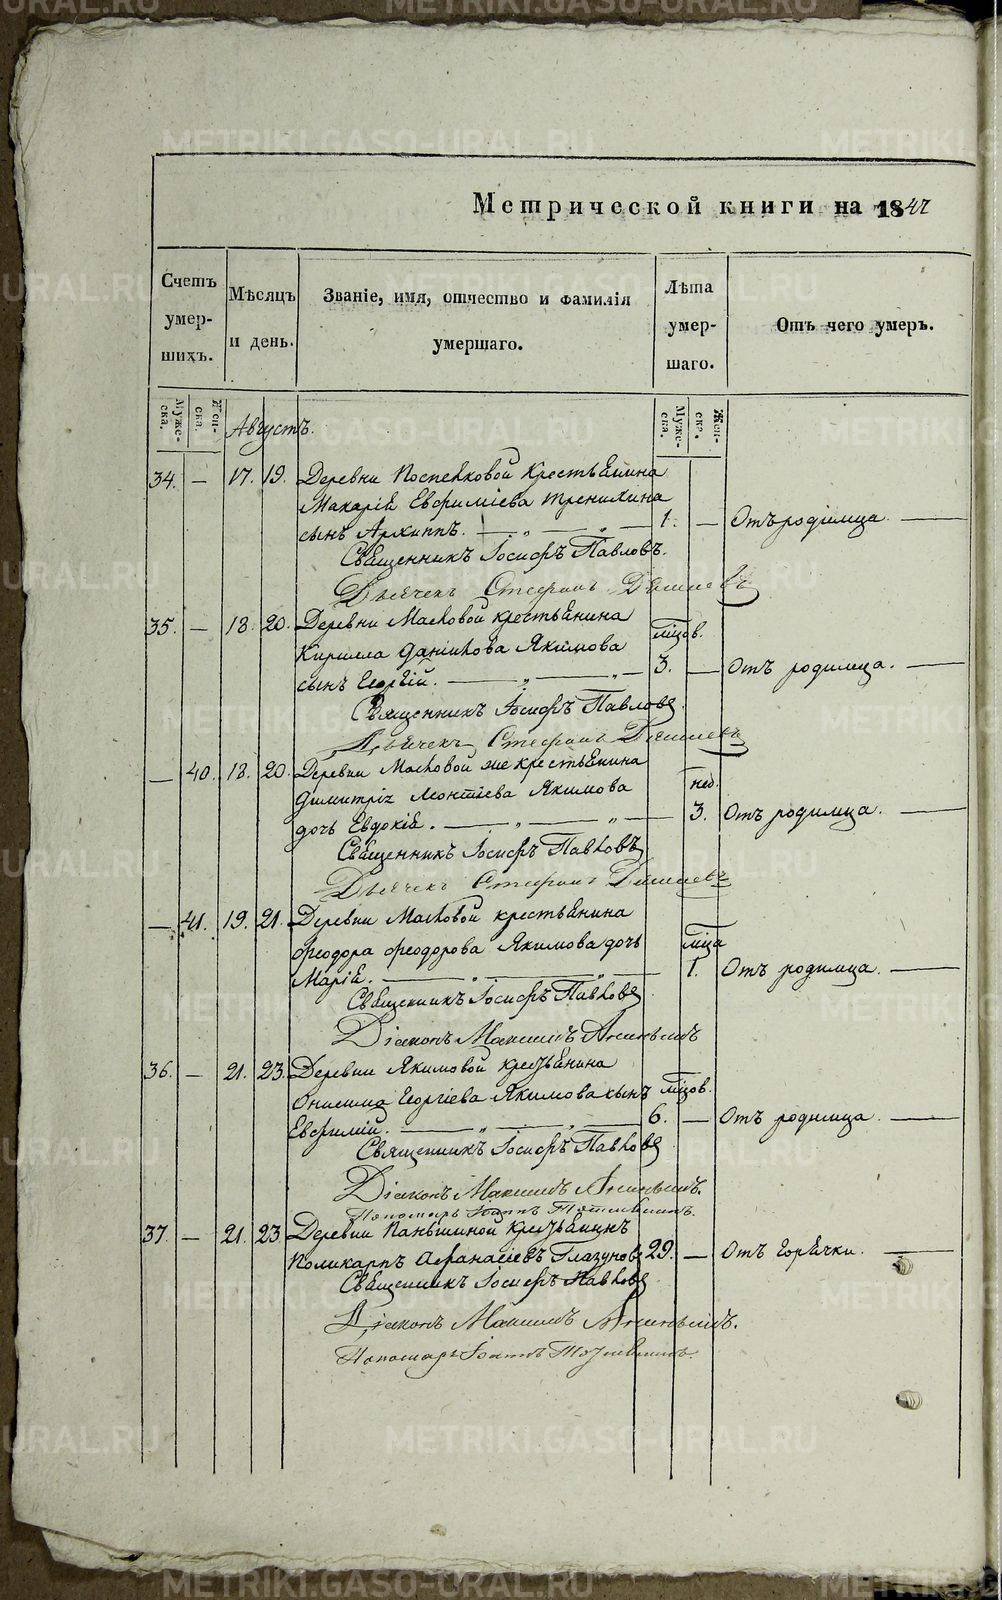 METRIKI.GASO-URAL.RU
Метрической книги на 1847
Счетъ умершихъ.
Мѣсяцъ и день.
Званіе, имя, отчество и фамилія умершаго.
Лѣта умершаго.
Отъ чего умеръ.
Мужеска. Женска.
Мужеска. Женска.
Августъ.
34. — 17. 19. Деревни Поспелковой Крестьянина
Макарія Евфиміева Тренихина
сынъ Архиппъ. 1. — Отъ родимца.
Священникъ Іосифъ Павловъ.
Дьячекъ Стефанъ
35. — 18. 20. Деревни Масловой крестьянина
Кирилла Данилова Якимова мцов.
сынъ Георгій. 3. — Отъ родимца.
Священникъ Іосифъ Павловъ
Дьячекъ Стефанъ
— 40. 18. 20. Деревни Масловой же крестьянина
Димитрія Леонтіева Якимова нед.
дочь Евдокія. 3. Отъ родимца.
Священникъ Іосифъ Павловъ
Дьячекъ Стефанъ
— 41. 19. 21. Деревни Масловой крестьянина
Ѳеодора Ѳеодорова Якимова дочь мца
Марія. 1. Отъ родимца.
Священникъ Іосифъ Павловъ
Діаконъ Максимъ
36. — 21. 23. Деревни Якимовой крестьянина
Онисима Георгіева Якимова сынъ мцов.
Евфимій. 6. — Отъ родимца.
Священникъ Іосифъ Павловъ
Діаконъ Максимъ
Пономарь Іоаннъ
37. — 21. 23 Деревни Паньшиной Крестьянинъ
Поликарпъ Аѳанасіевъ Глазуновъ 29. — Отъ горячки.
Священникъ Іосифъ Павловъ
Діаконъ Максимъ
Пономарь Іоаннъ